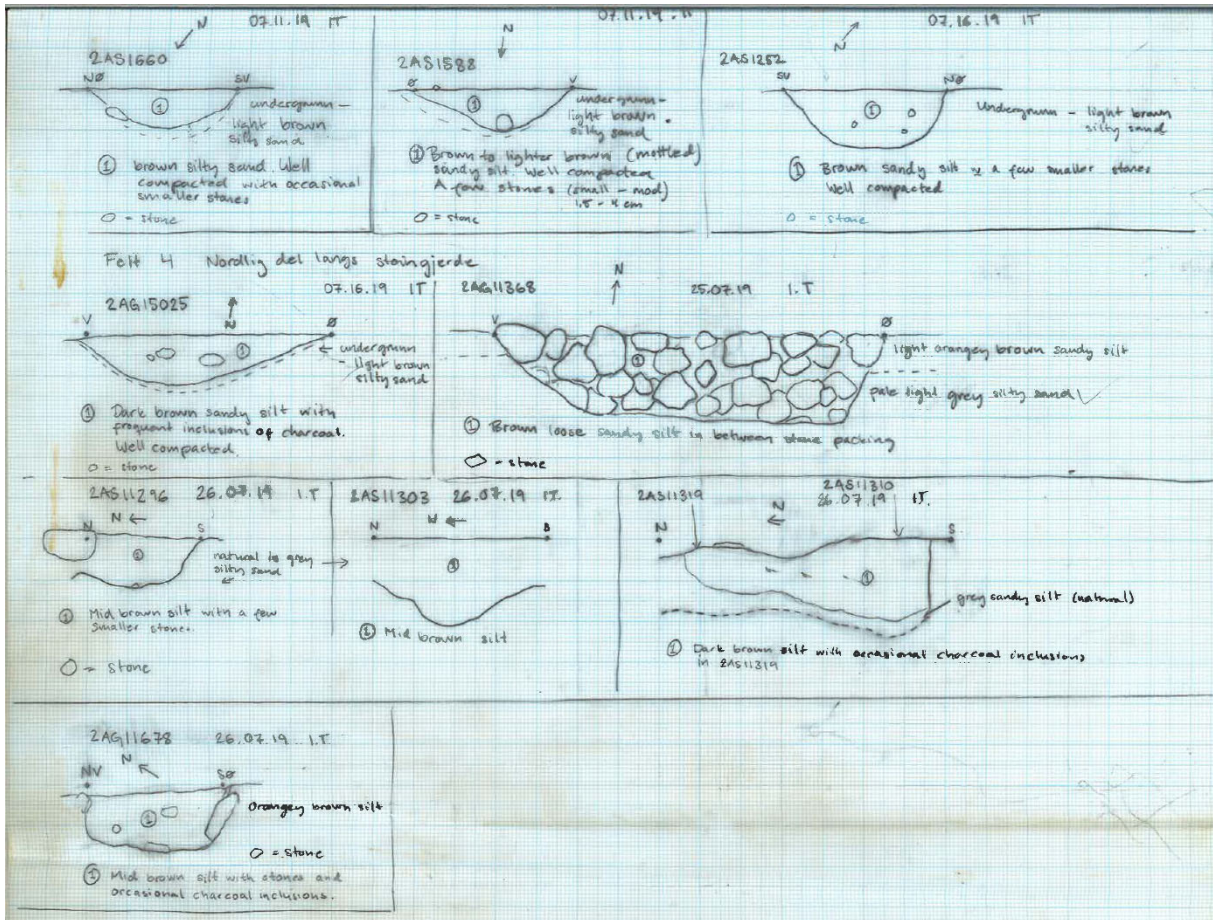 07.11.19 IT
N
2AS1660
NØ SV
1
undergrunn -
light brown
silty sand
1 brown silty sand. Well
compacted with occasional
smaller stones
= stone
07.11.19
N
2AS1588
Ø V
1
undergrunn -
light brown
silty sand
1 Brown to lighter brown (mottled)
sandy silt. Well compacted
A few stones (small - mod)
1,5 - 4 cm
= stone
07.16.19 IT
N
2AS1252
SV NØ
1
Undergrunn - light brown
silty sand
1 Brown sandy silt a few smaller stones
Well compacted
= stone
Felt 4 Nordlig del langs steingjerde
07.16.19 IT
2AG15025
N
V Ø
1
undergrunn
light brown
silty sand
1 Dark brown sandy silt with
frequent inclusions of charcoal.
Well compacted.
= stone
2AG11368 25.07.19 I.T
N
V Ø
1
light orangey brown sandy silt
pale light grey silty sand
1 Brown loose sandy silt in between stone packing
= stone
2AS11296 26.07.19 I.T
N ←
N S
1
natural is grey →
silty sand
←
1 Mid brown silt with a few
smaller stones.
= stone
2AS11303 26.07.19 IT.
N ←
N S
1
1 Mid brown silt
2AS11319 2AS11310
26.07.19 IT.
N ←
N S
1
grey sandy silt (natural)
1 Dark brown silt with occasional charcoal inclusions
in 2AS11319
2AG11678 26.07.19 I.T
N
NV SØ
1
Orangey brown silt
= stone
1 Mid brown silt with stones and
occasional charcoal inclusions.